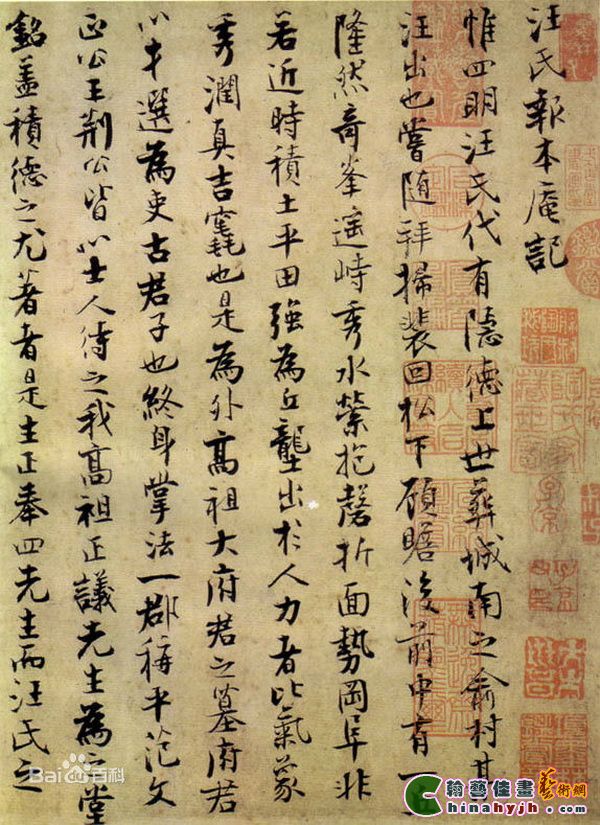 汪氏報本庵記
惟四明汪氏代有隱德上世葬城南之俞村其
汪出也嘗隨拜掃裴回松下顧瞻後前中有一
隆然奇峯遥峙秀水縈抱磬折面勢岡阜非
若近時積土平田強為丘壟出於人力者比氣象
秀潤真吉竁也是為外高祖大府君之墓府君
以才選為吏古君子也終身掌法一郡稱平范文
正公王荆公皆以士人待之我高祖正議先生為之堂
銘盖積德之尤著者是生正奉四先生而汪氏之
Bai百科
翰藝佳畫藝術網
Chinahyjh.com